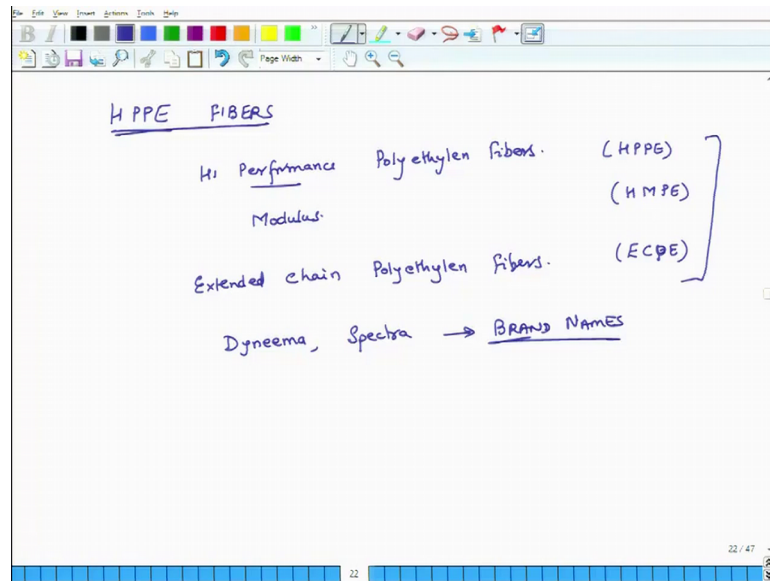 File Edit View Insert Actions Tools Help
B I
Page Width
HPPE FIBERS
Hi Performance Polyethylen fibers. (HPPE)
Modulus. (HMPE)
Extended chain Polyethylen fibers. (ECPE)
Dyneema, Spectra → BRAND NAMES
22 / 47
22